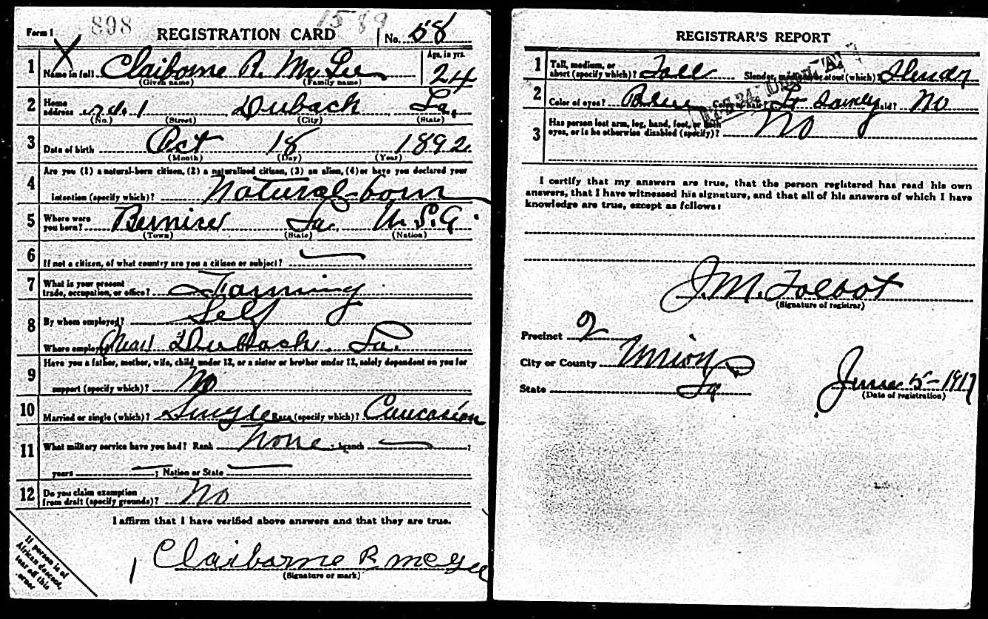 Form 1 898 1589
REGISTRATION CARD No. 58
1 Name in full Claiborne R. McGee Age, in yrs. 24
(Given name) (Family name)
2 Home address r.d.1 Dubach La.
(No.) (Street) (City) (State)
3 Date of birth Oct 18 1892
(Month) (Day) (Year)
Are you (1) a natural-born citizen, (2) a naturalized citizen, (3) an alien, (4) or have you declared your
4 intention (specify which)? Natural-born
5 Where were you born? Bernice La U.S.A.
(Town) (State) (Nation)
6 If not a citizen, of what country are you a citizen or subject?
7 What is your present trade, occupation, or office? Farming
8 By whom employed? Self
Where employed? Near Dubach La.
Have you a father, mother, wife, child under 12, or a sister or brother under 12, solely dependent on you for
9 support (specify which)? No
10 Married or single (which)? Single Race (specify which)? Caucasian
11 What military service have you had? Rank None ; branch ;
years ; Nation or State
12 Do you claim exemption from draft (specify grounds)? No
I affirm that I have verified above answers and that they are true.
Claiborne R. McGee
(Signature or mark)
If person is of
African descent,
tear off this
corner
REGISTRAR'S REPORT
1 Tall, medium, or short (specify which)? Tall Slender, medium, or stout (which)? Slender
2 Color of eyes? Color of hair? Bald? No
3 Has person lost arm, leg, hand, foot, or both eyes, or is he otherwise disabled (specify)? No
I certify that my answers are true, that the person registered has read his own
answers, that I have witnessed his signature, and that all of his answers of which I have
knowledge are true, except as follows:
J.M. Tolbot
(Signature of registrar)
Precinct 2
City or County Union
State La
June 5-1917
(Date of registration)